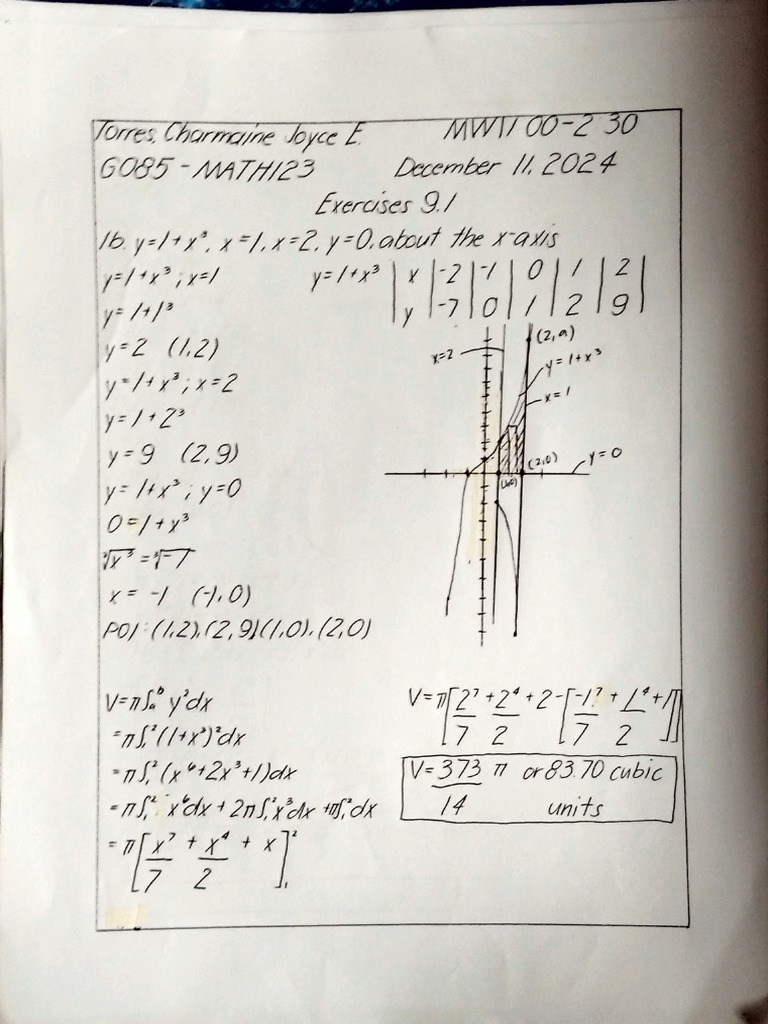 Torres, Charmaine Joyce E. MW11 00-2 30
G085 - MATH123 December 11, 2024
Exercises 9.1
16. y=1+x³, x=1, x=2, y=0, about the x-axis
y=1+x³; x=1
y=1+x³ | x | -2 | -1 | 0 | 1 | 2 |
y | -7 | 0 | 1 | 2 | 9 |
y=1+1³
y=2 (1,2)
y=1+x³; x=2
y=1+2³
y=9 (2,9)
y=1+x³; y=0
0=1+x³
∛x³ = ∛-1
x = -1 (-1,0)
POI: (1,2), (2,9) (1,0), (2,0)
x=2
(2,9)
y=1+x³
x=1
y=0
(2,0)
(1,0)
V=π∫ₐᵇ y²dx
=π∫₁²(1+x³)²dx
=π∫₁²(x⁶+2x³+1)dx
=π∫₁² x⁶dx + 2π∫₁²x³dx + π∫₁²dx
=π[x⁷/7 + x⁴/2 + x]₁²
V=π[2⁷/7 + 2⁴/2 + 2 - [-1⁷/7 + 1⁴/2 + 1]]
V=373/14 π or 83.70 cubic units